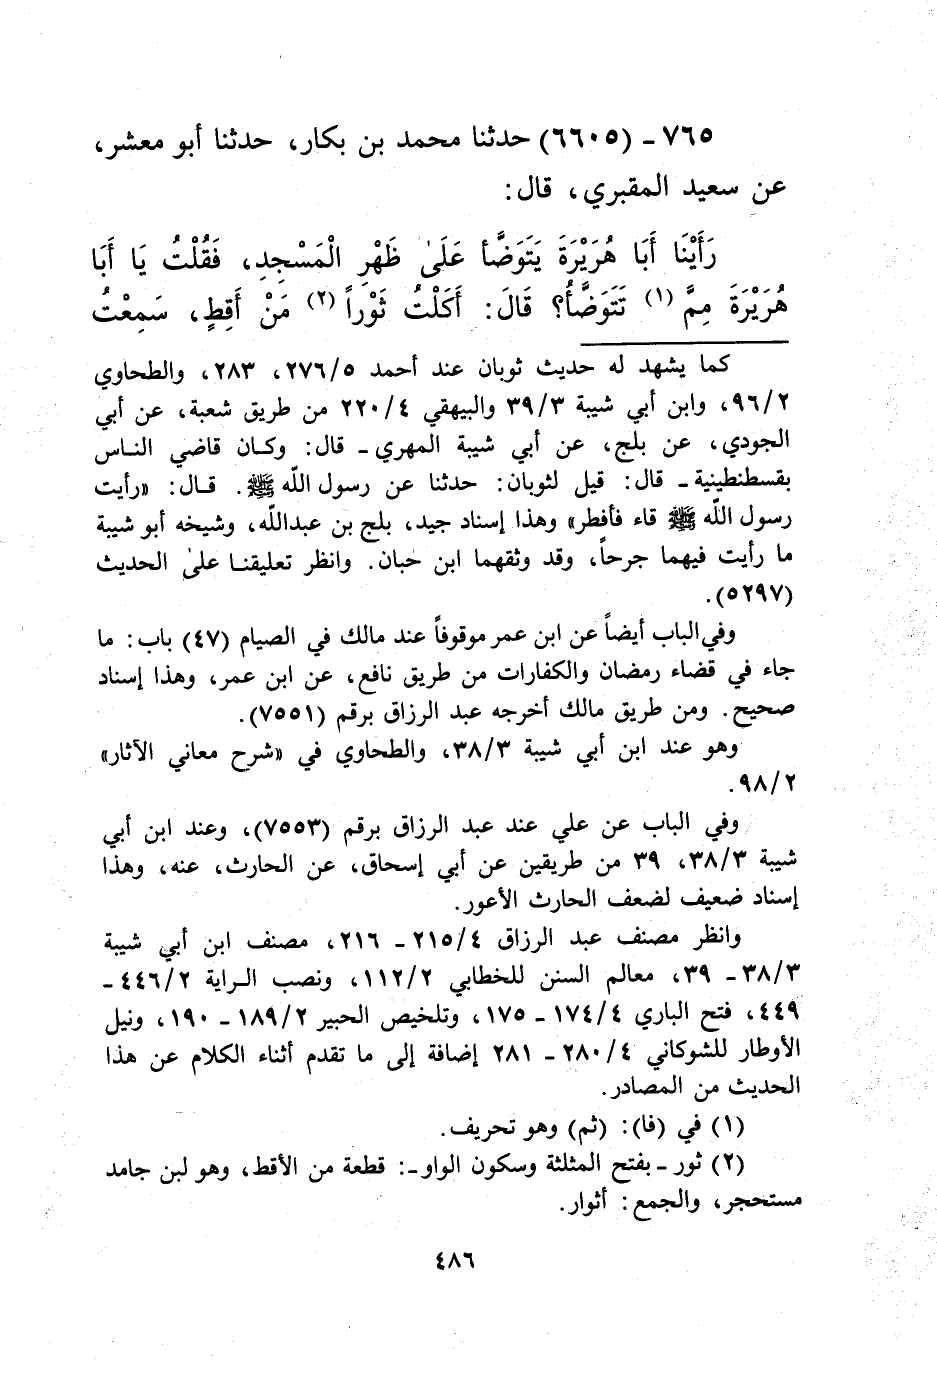 ٧٦٥ ـ (٦٦٠٥) حدثنا محمد بن بكار، حدثنا أبو معشر،
عن سعيد المقبري، قال:
رَأَيْنَا أَبَا هُرَيْرَةَ يَتَوَضَّأ عَلَىٰ ظَهْرِ الْمَسْجِدِ، فَقُلْتُ يَا أَبَا
هُرَيْرَةَ مِمَّ (١) تَتَوَضَّأُ؟ قَالَ: أَكَلْتُ ثَوْراً (٢) مَنْ أَقِطٍ، سَمِعْتُ
كما يشهد له حديث ثوبان عند أحمد ٢٧٦/٥، ٢٨٣، والطحاوي
٩٦/٢، وابن أبي شيبة ٣٩/٣ والبيهقي ٢٢٠/٤ من طريق شعبة، عن أبي
الجودي، عن بلج، عن أبي شيبة المهري ـ قال: وكـان قاضي النـاس
بقسطنطينية ـ قال: قيل لثوبان: حدثنا عن رسول اللّه ﷺ. قـال: «رأيت
رسول اللّه ﷺ قاء فأفطر» وهذا إسناد جيد، بلج بن عبداللّه، وشيخه أبو شيبة
ما رأيت فيهما جرحاً، وقد وثقهما ابن حبان. وانظر تعليقنـا علىٰ الحديث
(٥٢٩٧).
وفي الباب أيضاً عن ابن عمر موقوفاً عند مالك في الصيام (٤٧) باب: ما
جاء في قضاء رمضان والكفارات من طريق نافع، عن ابن عمر، وهذا إسناد
صحيح. ومن طريق مالك أخرجه عبد الرزاق برقم (٧٥٥١).
وهو عند ابن أبي شيبة ٣٨/٣، والطحاوي في «شرح معاني الآثار»
٩٨/٢.
وفي الباب عن علي عند عبد الرزاق برقم (٧٥٥٣)، وعند ابن أبي
شيبة ٣٨/٣، ٣٩ من طريقين عن أبي إسحاق، عن الحارث، عنه، وهذا
إسناد ضعيف لضعف الحارث الأعور.
وانظر مصنف عبد الرزاق ٢١٥/٤ ـ ٢١٦، مصنف ابن أبي شيبة
٣٨/٣ ـ ٣٩، معالم السنن للخطابي ١١٢/٢، ونصب الـراية ٤٤٦/٢ ـ
٤٤٩، فتح الباري ١٧٤/٤ ـ ١٧٥، وتلخيص الحبير ١٨٩/٢ ـ ١٩٠، ونيل
الأوطار للشوكاني ٢٨٠/٤ ـ ٢٨١ إضافة إلى ما تقدم أثناء الكلام عن هذا
الحديث من المصادر.
(١) في (فا): (ثم) وهو تحريف.
(٢) ثور ـ بفتح المثلثة وسكون الواو ـ: قطعة من الأقط، وهو لبن جامد
مستحجر، والجمع: أثوار.
٤٨٦